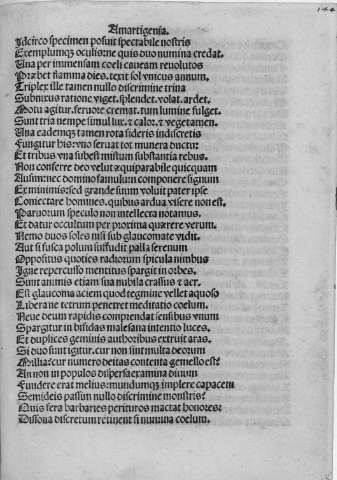 144
Amartigenia.
Idcirco specimen posuit spectabile nostris
Exemplumque oculis: ne quis duo numina credat.
Una per immensam coeli caveam revolutos
Præbet flamma dies. texit sol unicus annum.
Triplex ille tamen nullo discrimine trina
Subnixus ratione viget. splendet. volat. ardet.
Motu agitur. fervore cremat. tum lumine fulget.
Sunt tria nempe simul lux. & calor. & vegetamen.
Una eademque tamen rota sideris indiscretis
Fungitur his: uno servat tot munera ductu:
Et tribus una subest mistum substantia rebus.
Non conferre deo velut æquiparabile quicquam
Ausim: nec domino famulum componere signum
Et minimis: sed grande suum voluit pater ipse
Coniectare homines. quibus ardua visere non est.
Parvorum speculo non intellecta notamus.
Et datur occultum per proxima quærere verum.
Nemo duos soles nisi sub glaucomate vidit.
Aut si fusca polum suffudit palla serenum
Oppositus quoties radiorum spicula nimbus
Igne repercusso mentitus spargit in orbes.
Sunt animis etiam sua nubila crassus & aer.
Est glaucoma aciem quod tegmine vellet aquoso
Libera ne tetrum penetret meditatio coelum.
Neve deum rapidis comprendat sensibus unum
Spargitur in bifidas malesana intentio luces.
Et duplices geminis authoribus extruit aras.
Si duo sunt igitur. cur non sint multa deorum
Millia: cur numero deitas contenta gemello est?
An non in populos dispersa examina divum
Fundere erat melius: mundumque implere capacem
Semideis passim nullo discrimine monstris?
Quis fera barbaries perituros mactat honores:
Dissona discretum retinent si numina coelum.